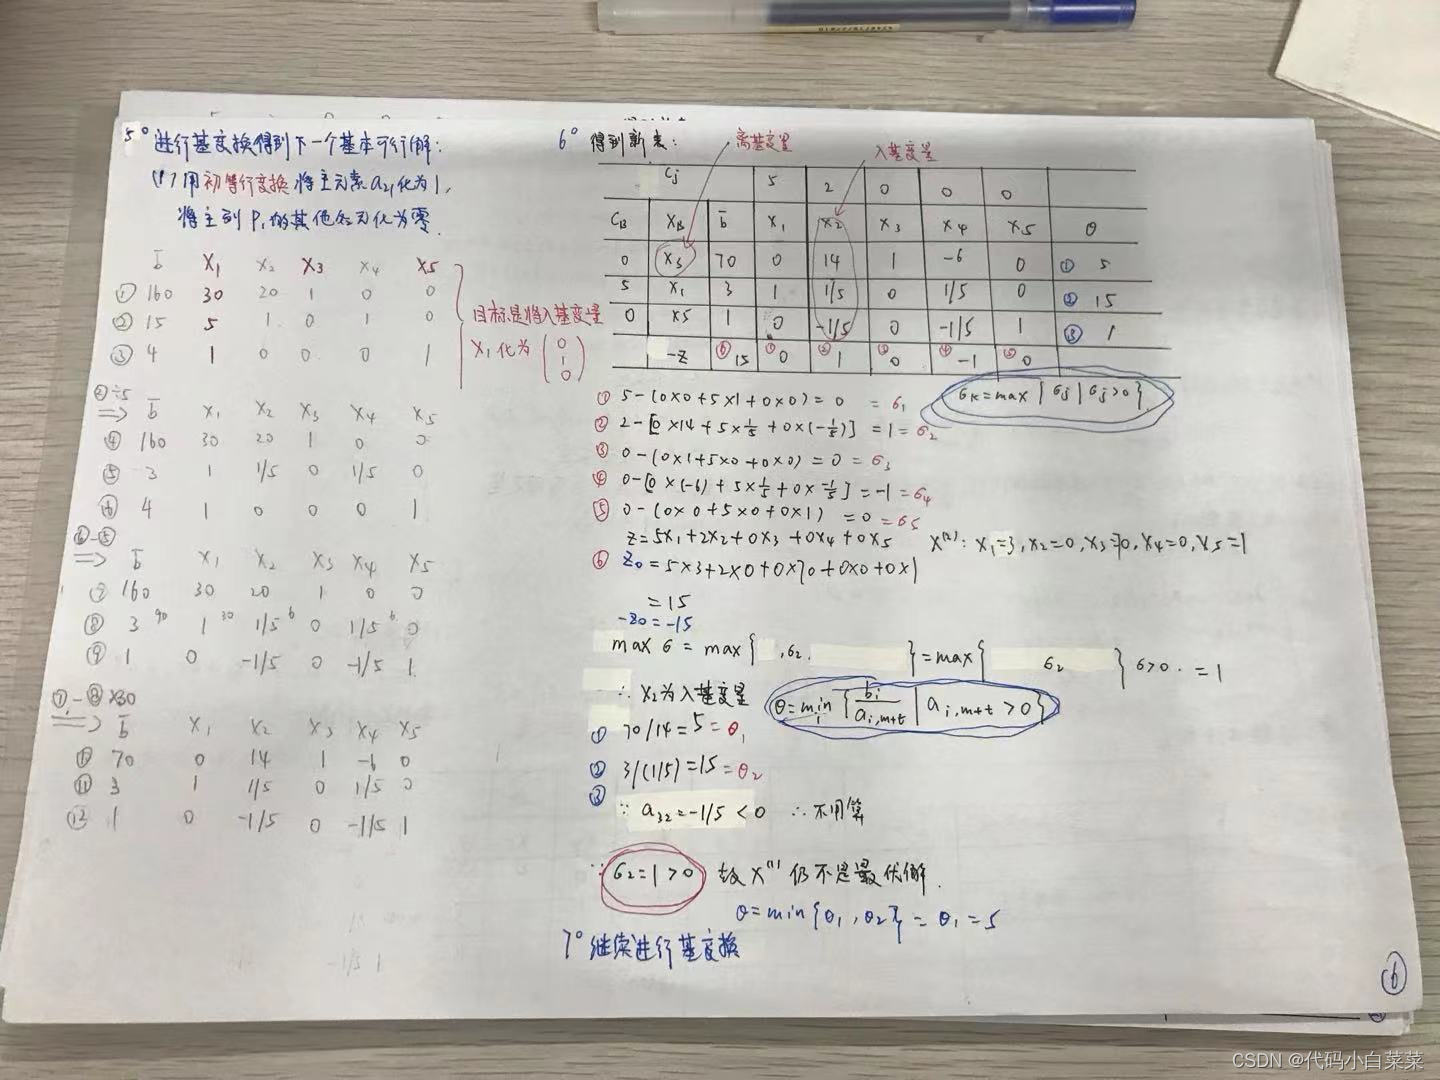 5° 进行基变换得到下一个基本可行解:
(1) 用初等行变换将主元素a21化为1,
将主列P1的其他分元化为零.
b̄ X1 X2 X3 X4 X5
① 160 30 20 1 0 0
② 15 5 1 0 1 0
③ 4 1 0 0 0 1
目标是将入基变量
X1化为 (0 1 0)
②÷5
⇒ b̄ X1 X2 X3 X4 X5
④ 160 30 20 1 0 0
⑤ 3 1 1/5 0 1/5 0
⑥ 4 1 0 0 0 1
⑥-⑤
⇒ b̄ X1 X2 X3 X4 X5
⑦ 160 30 20 1 0 0
⑧ 3 90 1 30 1/5 6 0 1/5 6 0
⑨ 1 0 -1/5 0 -1/5 1
⑦-⑧×30
⇒ b̄ X1 X2 X3 X4 X5
⑩ 70 0 14 1 -6 0
⑪ 3 1 1/5 0 1/5 0
⑫ 1 0 -1/5 0 -1/5 1
6° 得到新表:
离基变量
入基变量
Cj 5 2 0 0 0
CB XB b̄ X1 X2 X3 X4 X5 θ
0 X3 70 0 14 1 -6 0 ① 5
5 X1 3 1 1/5 0 1/5 0 ② 15
0 X5 1 0 -1/5 0 -1/5 1 ③ 1
-Z ⑥ 15 ① 0 ② 1 ③ 0 ④ -1 ⑤ 0
① 5-(0×0+5×1+0×0)=0 =σ1
σk=max{σj|σj>0}
② 2-[0×14+5×1/5+0×(-1/5)]=1=σ2
③ 0-(0×1+5×0+0×0)=0=σ3
④ 0-[0×(-6)+5×1/5+0×-1/5]=-1=σ4
⑤ 0-(0×0+5×0+0×1)=0=σ5
Z=5X1+2X2+0X3+0X4+0X5
X⁽¹⁾: X1=3,X2=0,X3=70,X4=0,X5=1
⑥ Z0=5×3+2×0+0×70+0×0+0×1
=15
-Z0=-15
max σ=max{ ,σ2. }=max{ σ2 } σ>0. =1
∴X2为入基变量
θ=min i {bi/ai,m+t | ai,m+t>0}
① 70/14=5=θ1
② 3/(1/5)=15=θ2
③ ∵a32=-1/5<0 ∴不用算
∵σ2=1>0 故X⁽¹⁾仍不是最优解.
θ=min{θ1,θ2}=θ1=5
7° 继续进行基变换
⑥
CSDN @代码小白菜菜